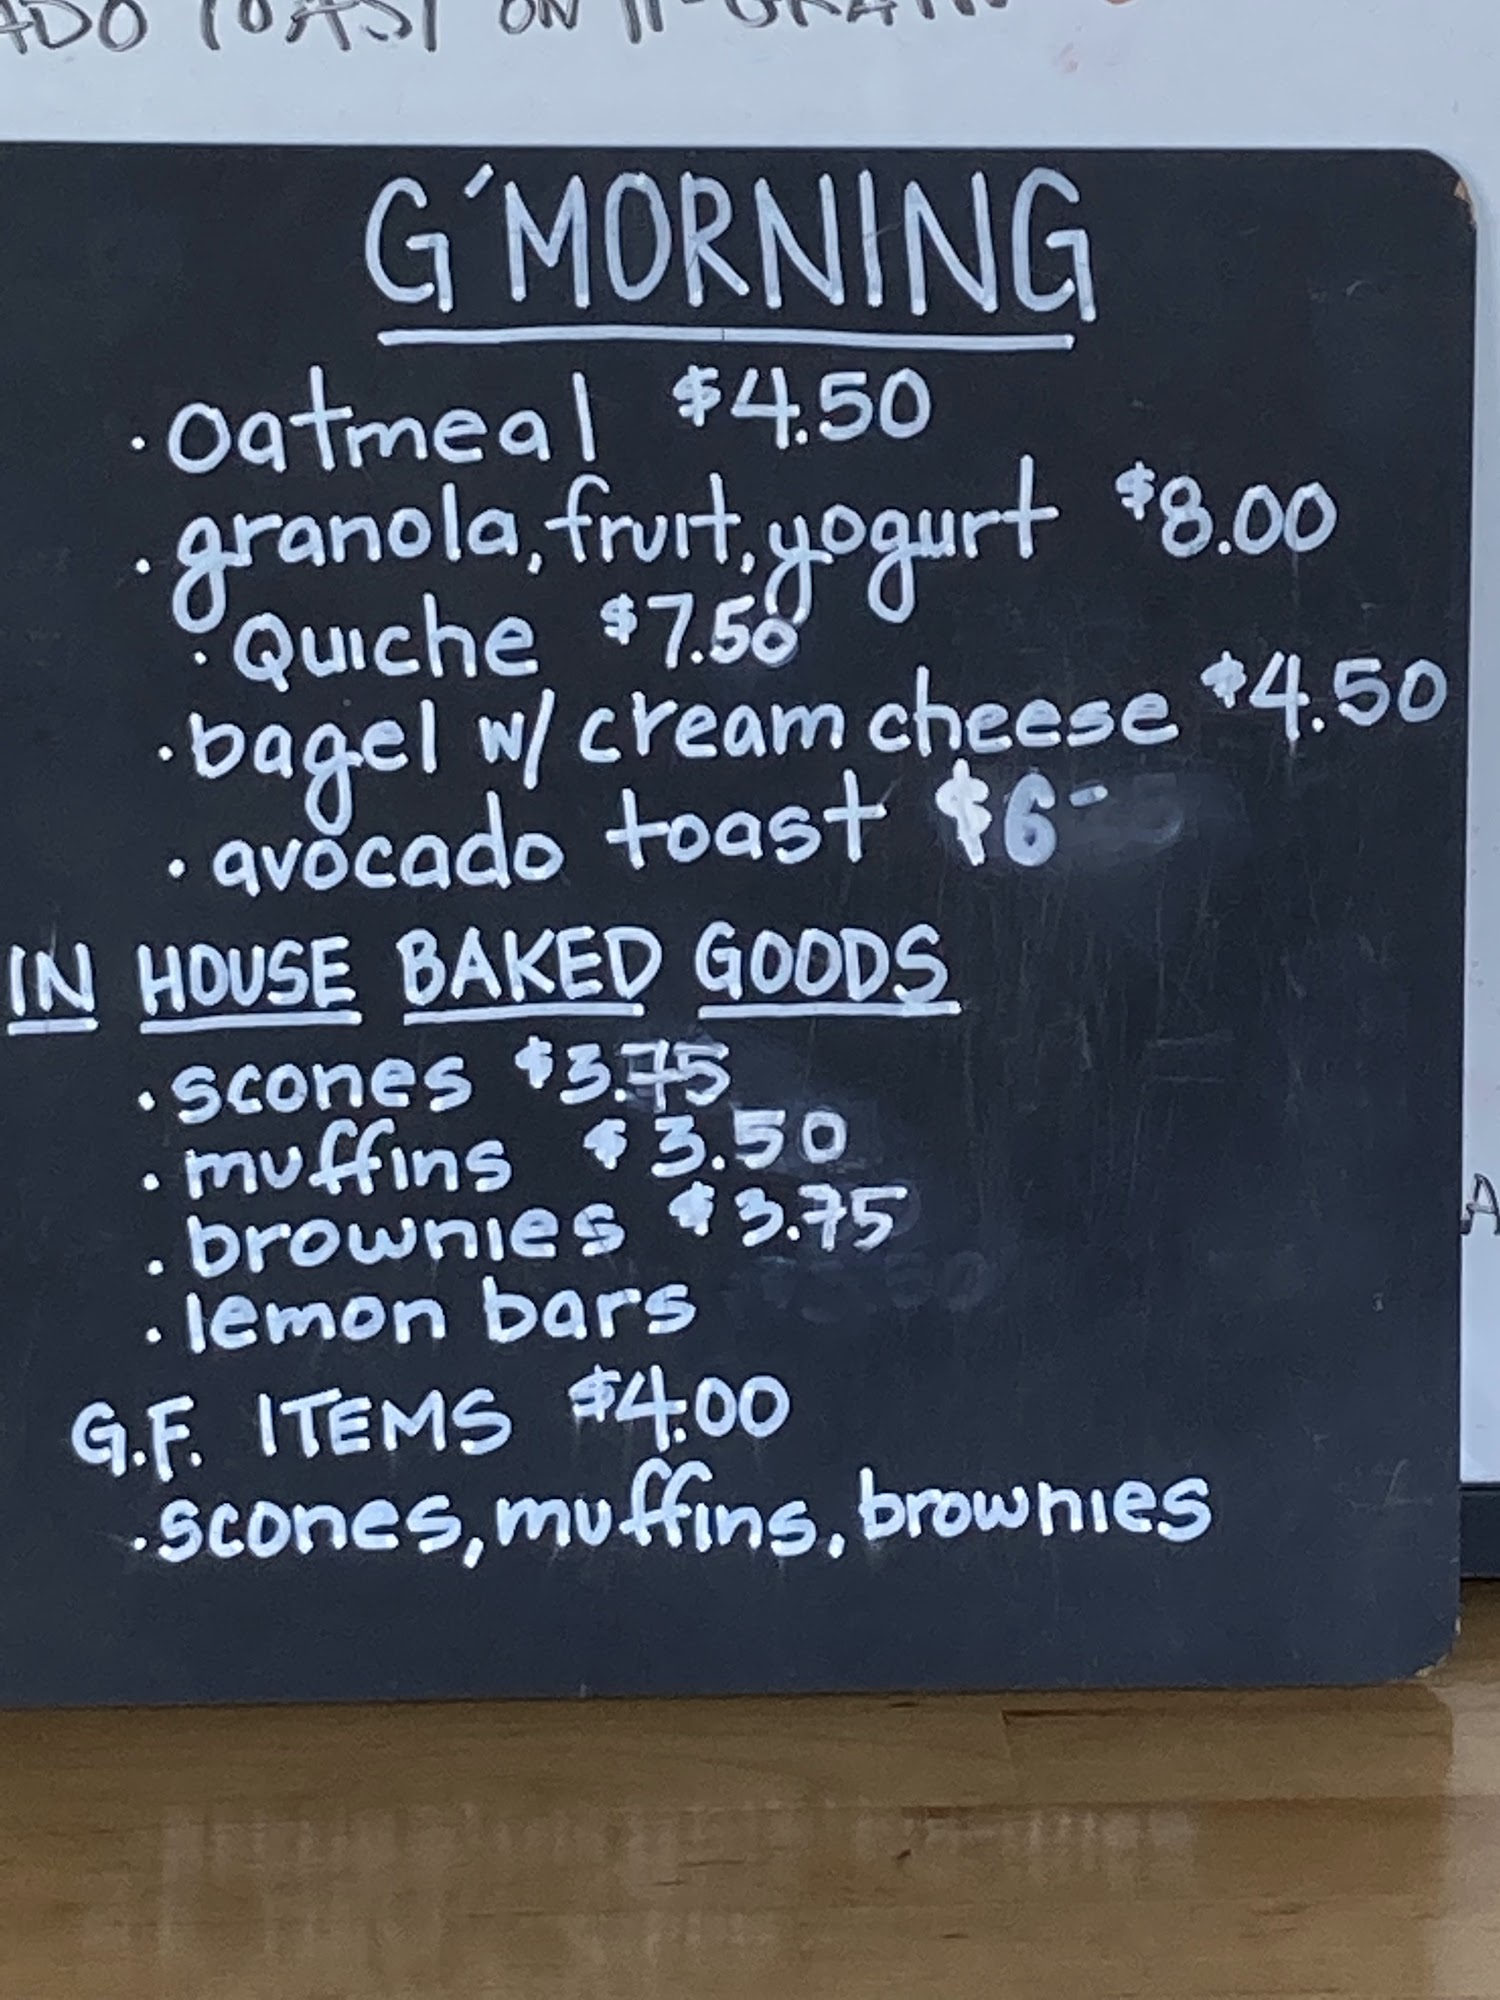 TOAST ON
G'MORNING
· Oatmeal $4.50
· granola, fruit, yogurt $8.00
· Quiche $7.50
· bagel w/ cream cheese $4.50
· avocado toast $6-
IN HOUSE BAKED GOODS
· scones $3.75
· muffins $3.50
· brownies $3.75
· lemon bars
G.F. ITEMS $4.00
· scones, muffins, brownies